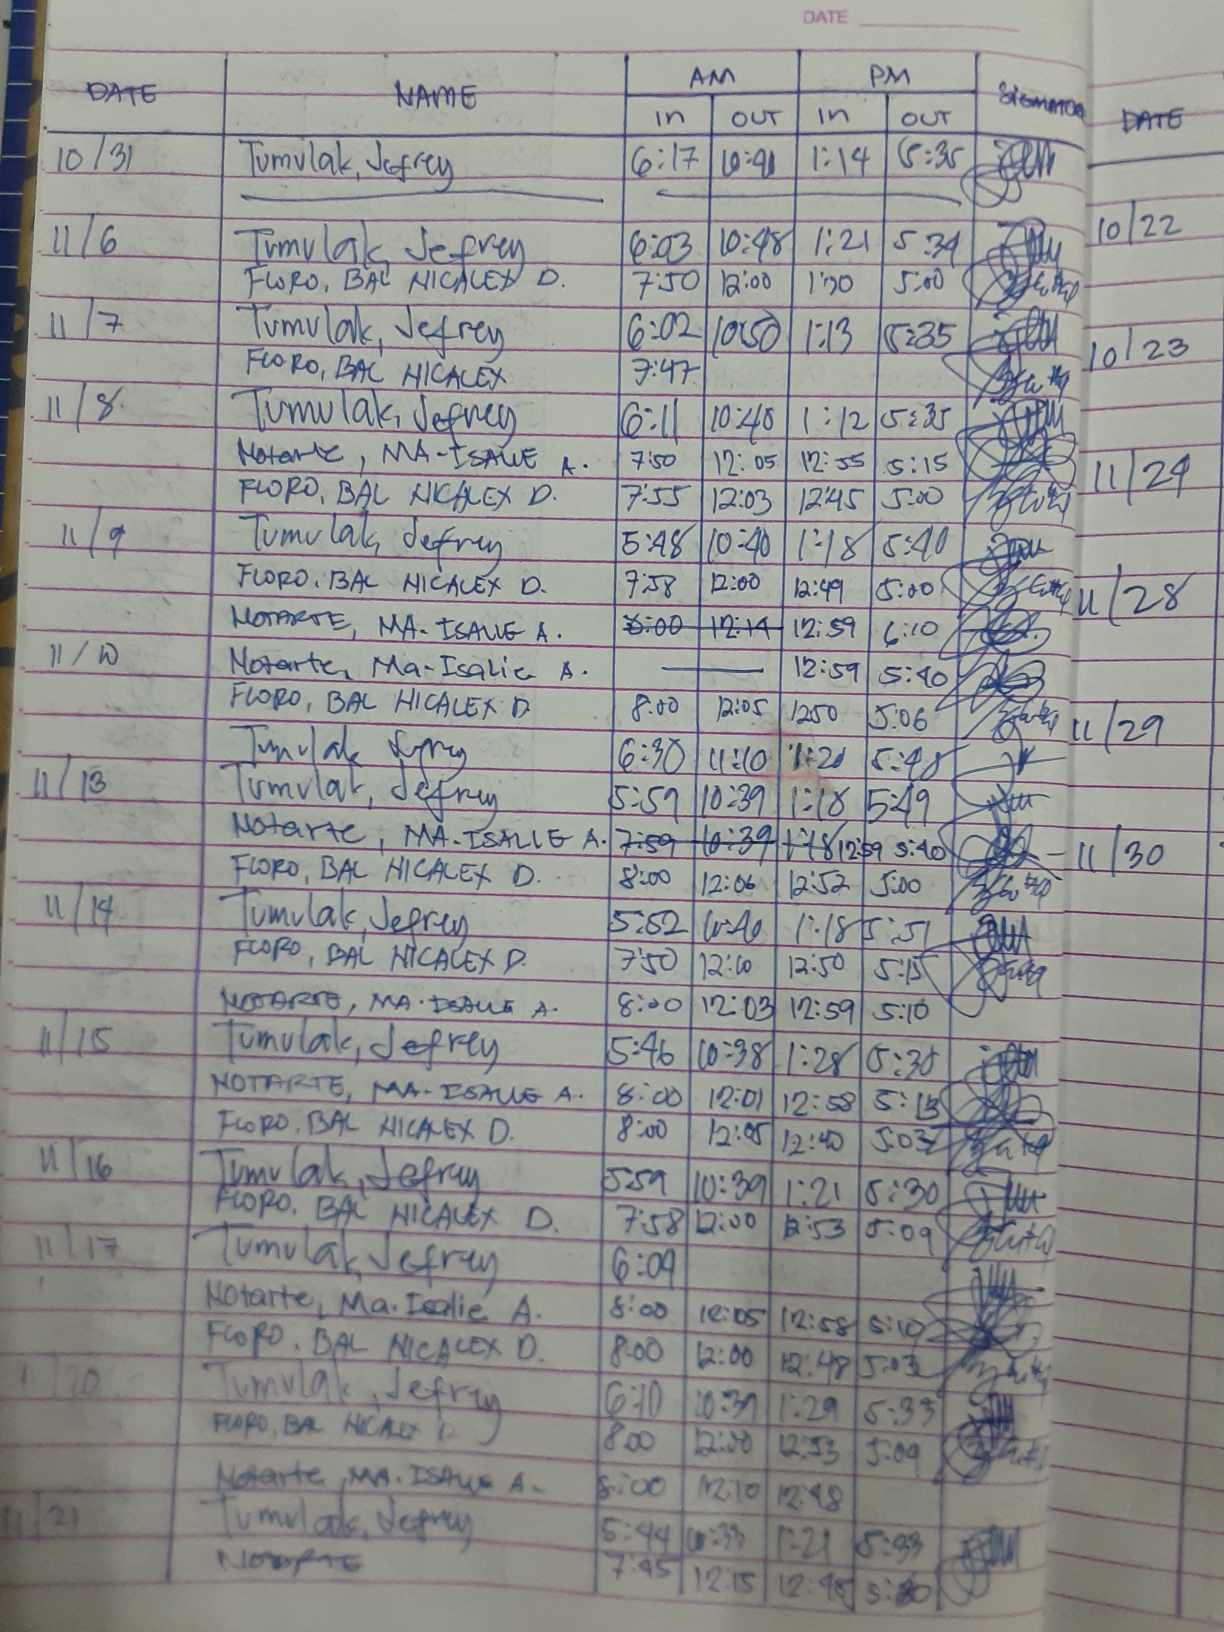 DATE
DATE NAME AM PM SIGNATURE DATE
IN OUT IN OUT
10/31 Tumulak, Jefrey 6:17 10:40 1:14 5:35
11/6 Tumulak, Jefrey 6:03 10:48 1:21 5:34
FLORO, BAL NICALEX D. 7:50 12:00 1:30 5:00
11/7 Tumulak, Jefrey 6:02 10:50 1:13 5:35
FLORO, BAL NICALEX 7:47
11/8 Tumulak, Jefrey 6:11 10:40 1:12 5:35
Notarte, MA-ISALIE A. 7:50 12:05 12:55 5:15
FLORO, BAL NICALEX D. 7:55 12:03 12:45 5:00
11/9 Tumulak, Jefrey 5:48 10:40 1:18 5:40
FLORO, BAL NICALEX D. 7:58 12:00 12:49 5:00
NOTARTE, MA-ISALIE A. 12:14 12:59 6:10
11/10 Notarte, Ma-Isalie A. 12:59 5:40
FLORO, BAL NICALEX D. 8:00 12:05 1250 5:06
Tumulak 6:30 11:10 1:20 5:48
11/13 Tumulak, Jefrey 5:59 10:39 1:18 5:49
Notarte, MA-ISALIE A. 7:59 10:39 1:18 12:59 5:40
FLORO, BAL NICALEX D. 8:00 12:06 12:52 5:00
11/14 Tumulak, Jefrey 5:52 10:40 1:18 5:51
FLORO, BAL NICALEX D. 7:50 12:10 12:50 5:15
NOTARTE, MA-ISALIE A. 8:00 12:03 12:59 5:10
11/15 Tumulak, Jefrey 5:46 10:38 1:28 5:30
NOTARTE, MA-ISALIE A. 8:00 12:01 12:58 5:15
FLORO, BAL NICALEX D. 8:00 12:05 12:40 5:03
11/16 Tumulak, Jefrey 5:59 10:39 1:21 5:30
FLORO, BAL NICALEX D. 7:58 12:00 12:53 5:09
11/17 Tumulak, Jefrey 6:09
Notarte, Ma-Isalie A. 8:00 12:05 12:58 5:10
FLORO, BAL NICALEX D. 8:00 12:00 12:48 5:03
20 Tumulak, Jefrey 6:10 10:39 1:29 5:33
FLORO, BAL NICALEX D 8:00 12:00 12:53 5:09
Notarte, MA-ISALIE A. 8:00 12:10 12:48
11/21 Tumulak, Jefrey 5:44 10:33 1:21 5:33
NOTARTE 7:45 12:15 12:45
10/22
10/23
11/24
11/28
11/29
11/30